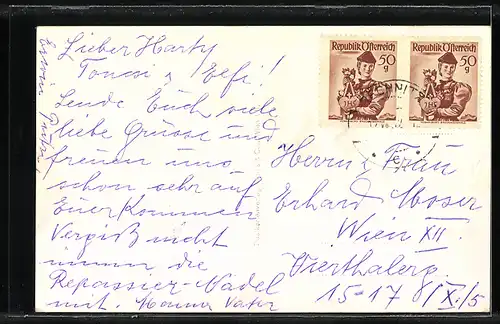 Lieber Harty
Toni u. Pepi!
Sende Euch viele
liebe Grüsse und
freuen uns
schon sehr auf
Euer Kommen
Vergiß nicht
die
Repassier-Nadel
mit. Mama Vater
Republik Österreich
50 g
Republik Österreich
50 g
Herrn u. Frau
Erhard Moser
Wien XII.
Vierthalerg.
15-17 8/X./5